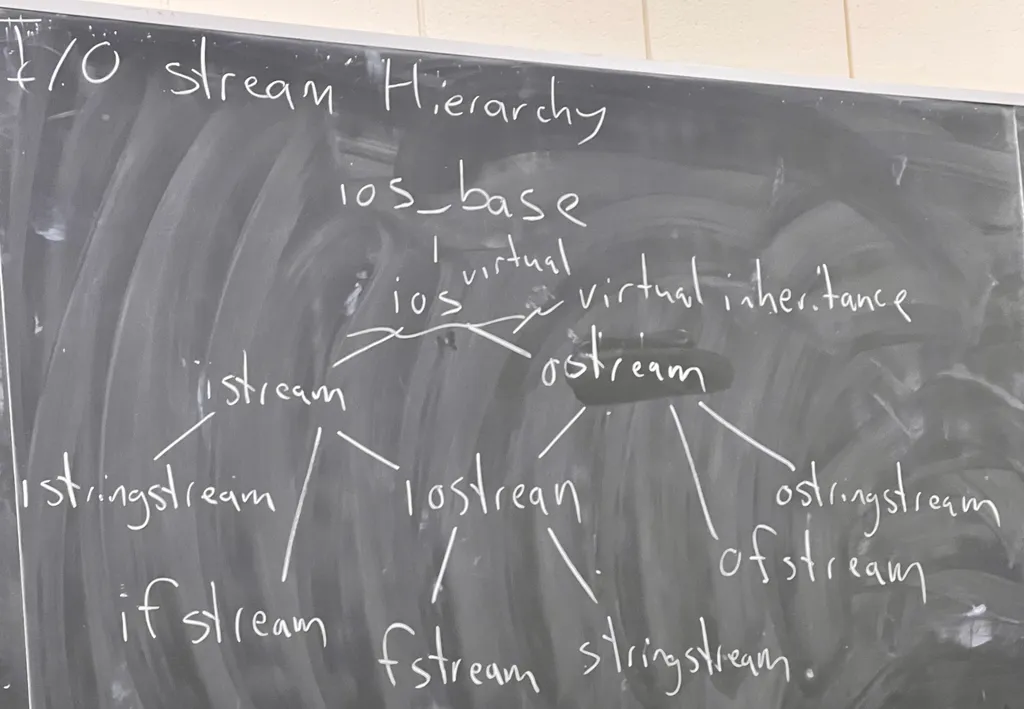 I/O stream Hierarchy
ios_base
virtual
ios
virtual inheritance
istream
ostream
istringstream
iostrean
ostringstream
ofstream
ifstream
fstream
stringstream